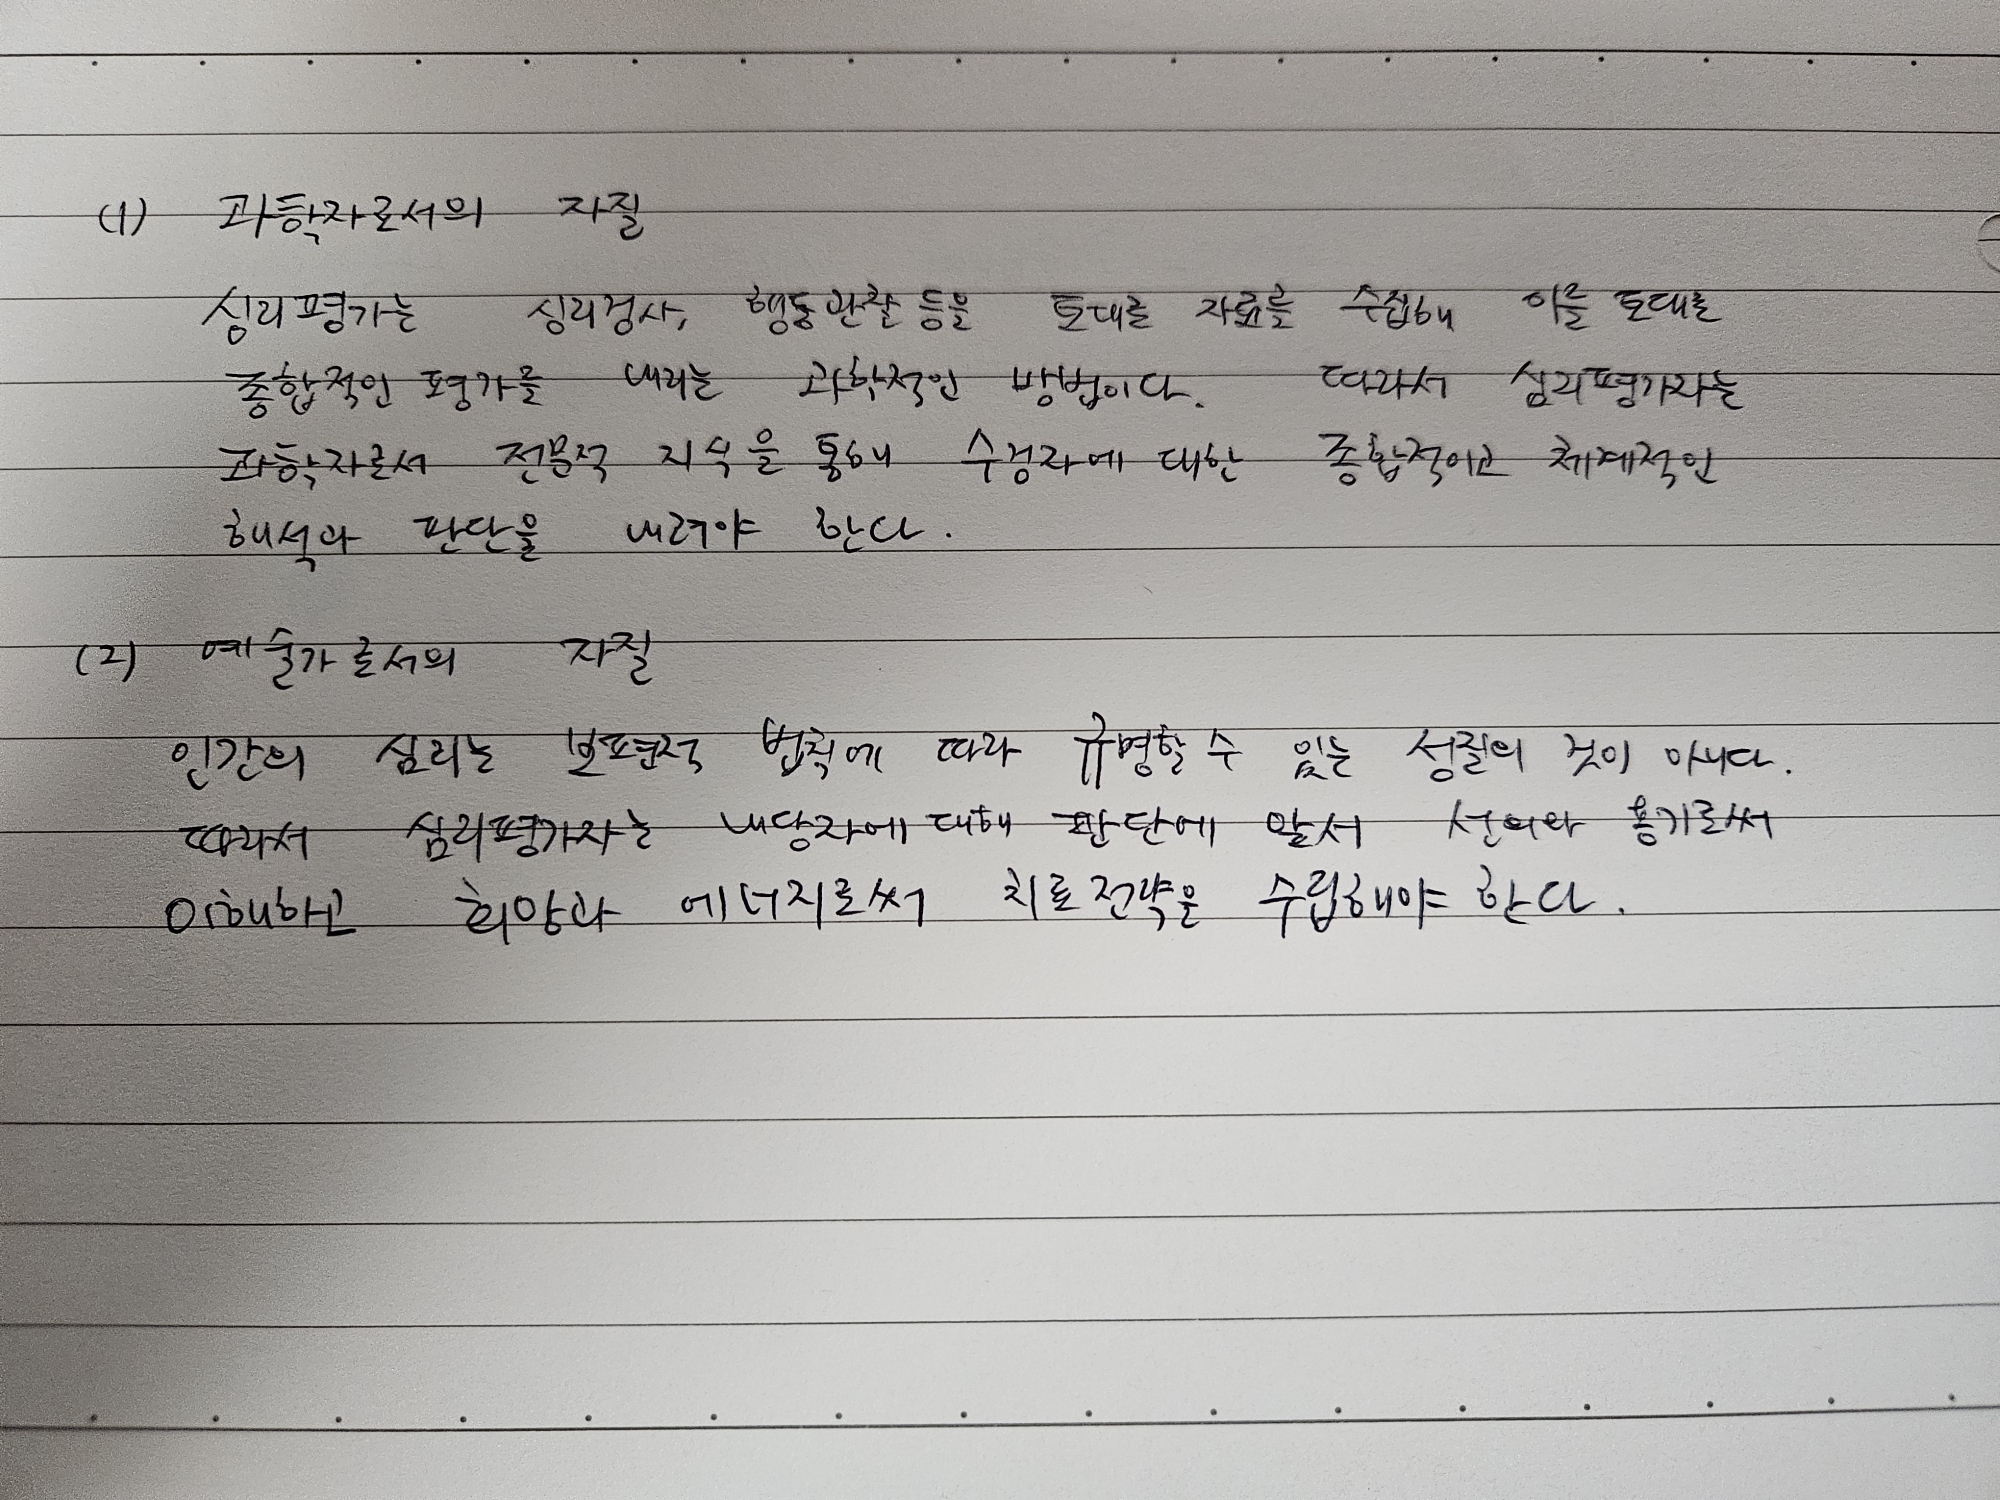 (1) 과학자로서의 자질
심리평가는 심리검사, 행동관찰 등을 토대로 자료를 수집해 이를 토대로
종합적인 평가를 내리는 과학적인 방법이다. 따라서 심리평가자는
과학자로서 전문적 지식을 통해 수검자에 대한 종합적이고 체계적인
해석과 판단을 내려야 한다.
(2) 예술가로서의 자질
인간의 심리는 보편적 법칙에 따라 규명할 수 있는 성질의 것이 아니다.
따라서 심리평가자는 내담자에 대해 판단에 앞서 선의와 용기로써
이해하고 희망과 에너지로써 치료전략을 수립해야 한다.